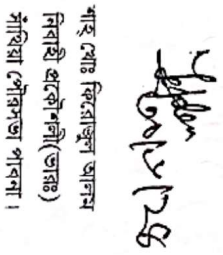 শাহ্ মোঃ ফিরোজুল আলম
নির্বাহী প্রকৌশলী(ভারঃ)
সাঁথিয়া পৌরসভা পাবনা ।